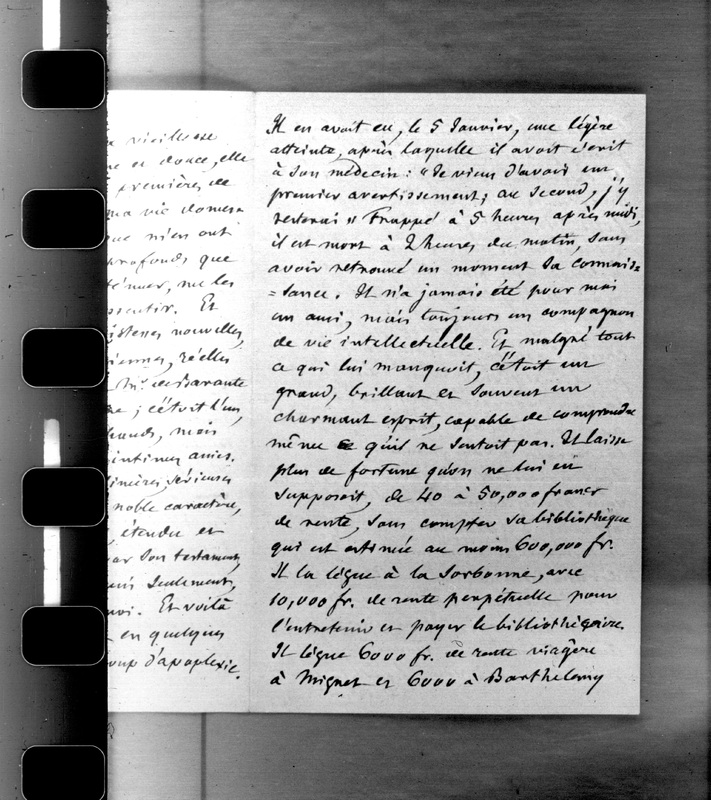 vieillesse
et douce, elle
première, de
ma vie domes=
que n'en ont
profonds que
ténuer, ne les
ssentir. Et
istesses nouvelles,
iennes, réelles
Mr. de Barante
; c'étoit l'un,
hauts, mais
intimes amis.
sérieuses
noble caractère,
étendu et
par son testament,
seulement,
moi. Et voilà
en quelques
coup d'apoplexie.
Il en avoit eu, le 5 Janvier, une légère
atteinte, après laquelle il avoit écrit
à son médecin : "Je viens d'avoir un
premier avertissement ; au second, j'y
resterai" Frappé à 5 heures après midi,
il est mort à 2 heures du matin, sans
avoir retrouvé un moment sa connais=
=sance. Il n'a jamais été pour moi
un ami, mais toujours un compagnon
de vie intellectuelle. Et malgré tout
ce qui lui manquoit, c'étoit un
grand, brillant et souvent un
charmant esprit, capable de comprendre
même ce qu'il ne sentoit pas. Il laisse
plus de fortune qu'on ne lui en
supposoit, de 40 à 50,000 francs
de rente, sans compter sa bibliothèque
qui est estimée au moins 600,000 fr.
Il la lègue à la Sorbonne, avec
10,000 fr. de rente perpétuelle pour
l'entretenir et payer le bibliothécaire.
Il lègue 6000 fr. de rente viagère
à Mignet et 6000 à Barthelemy